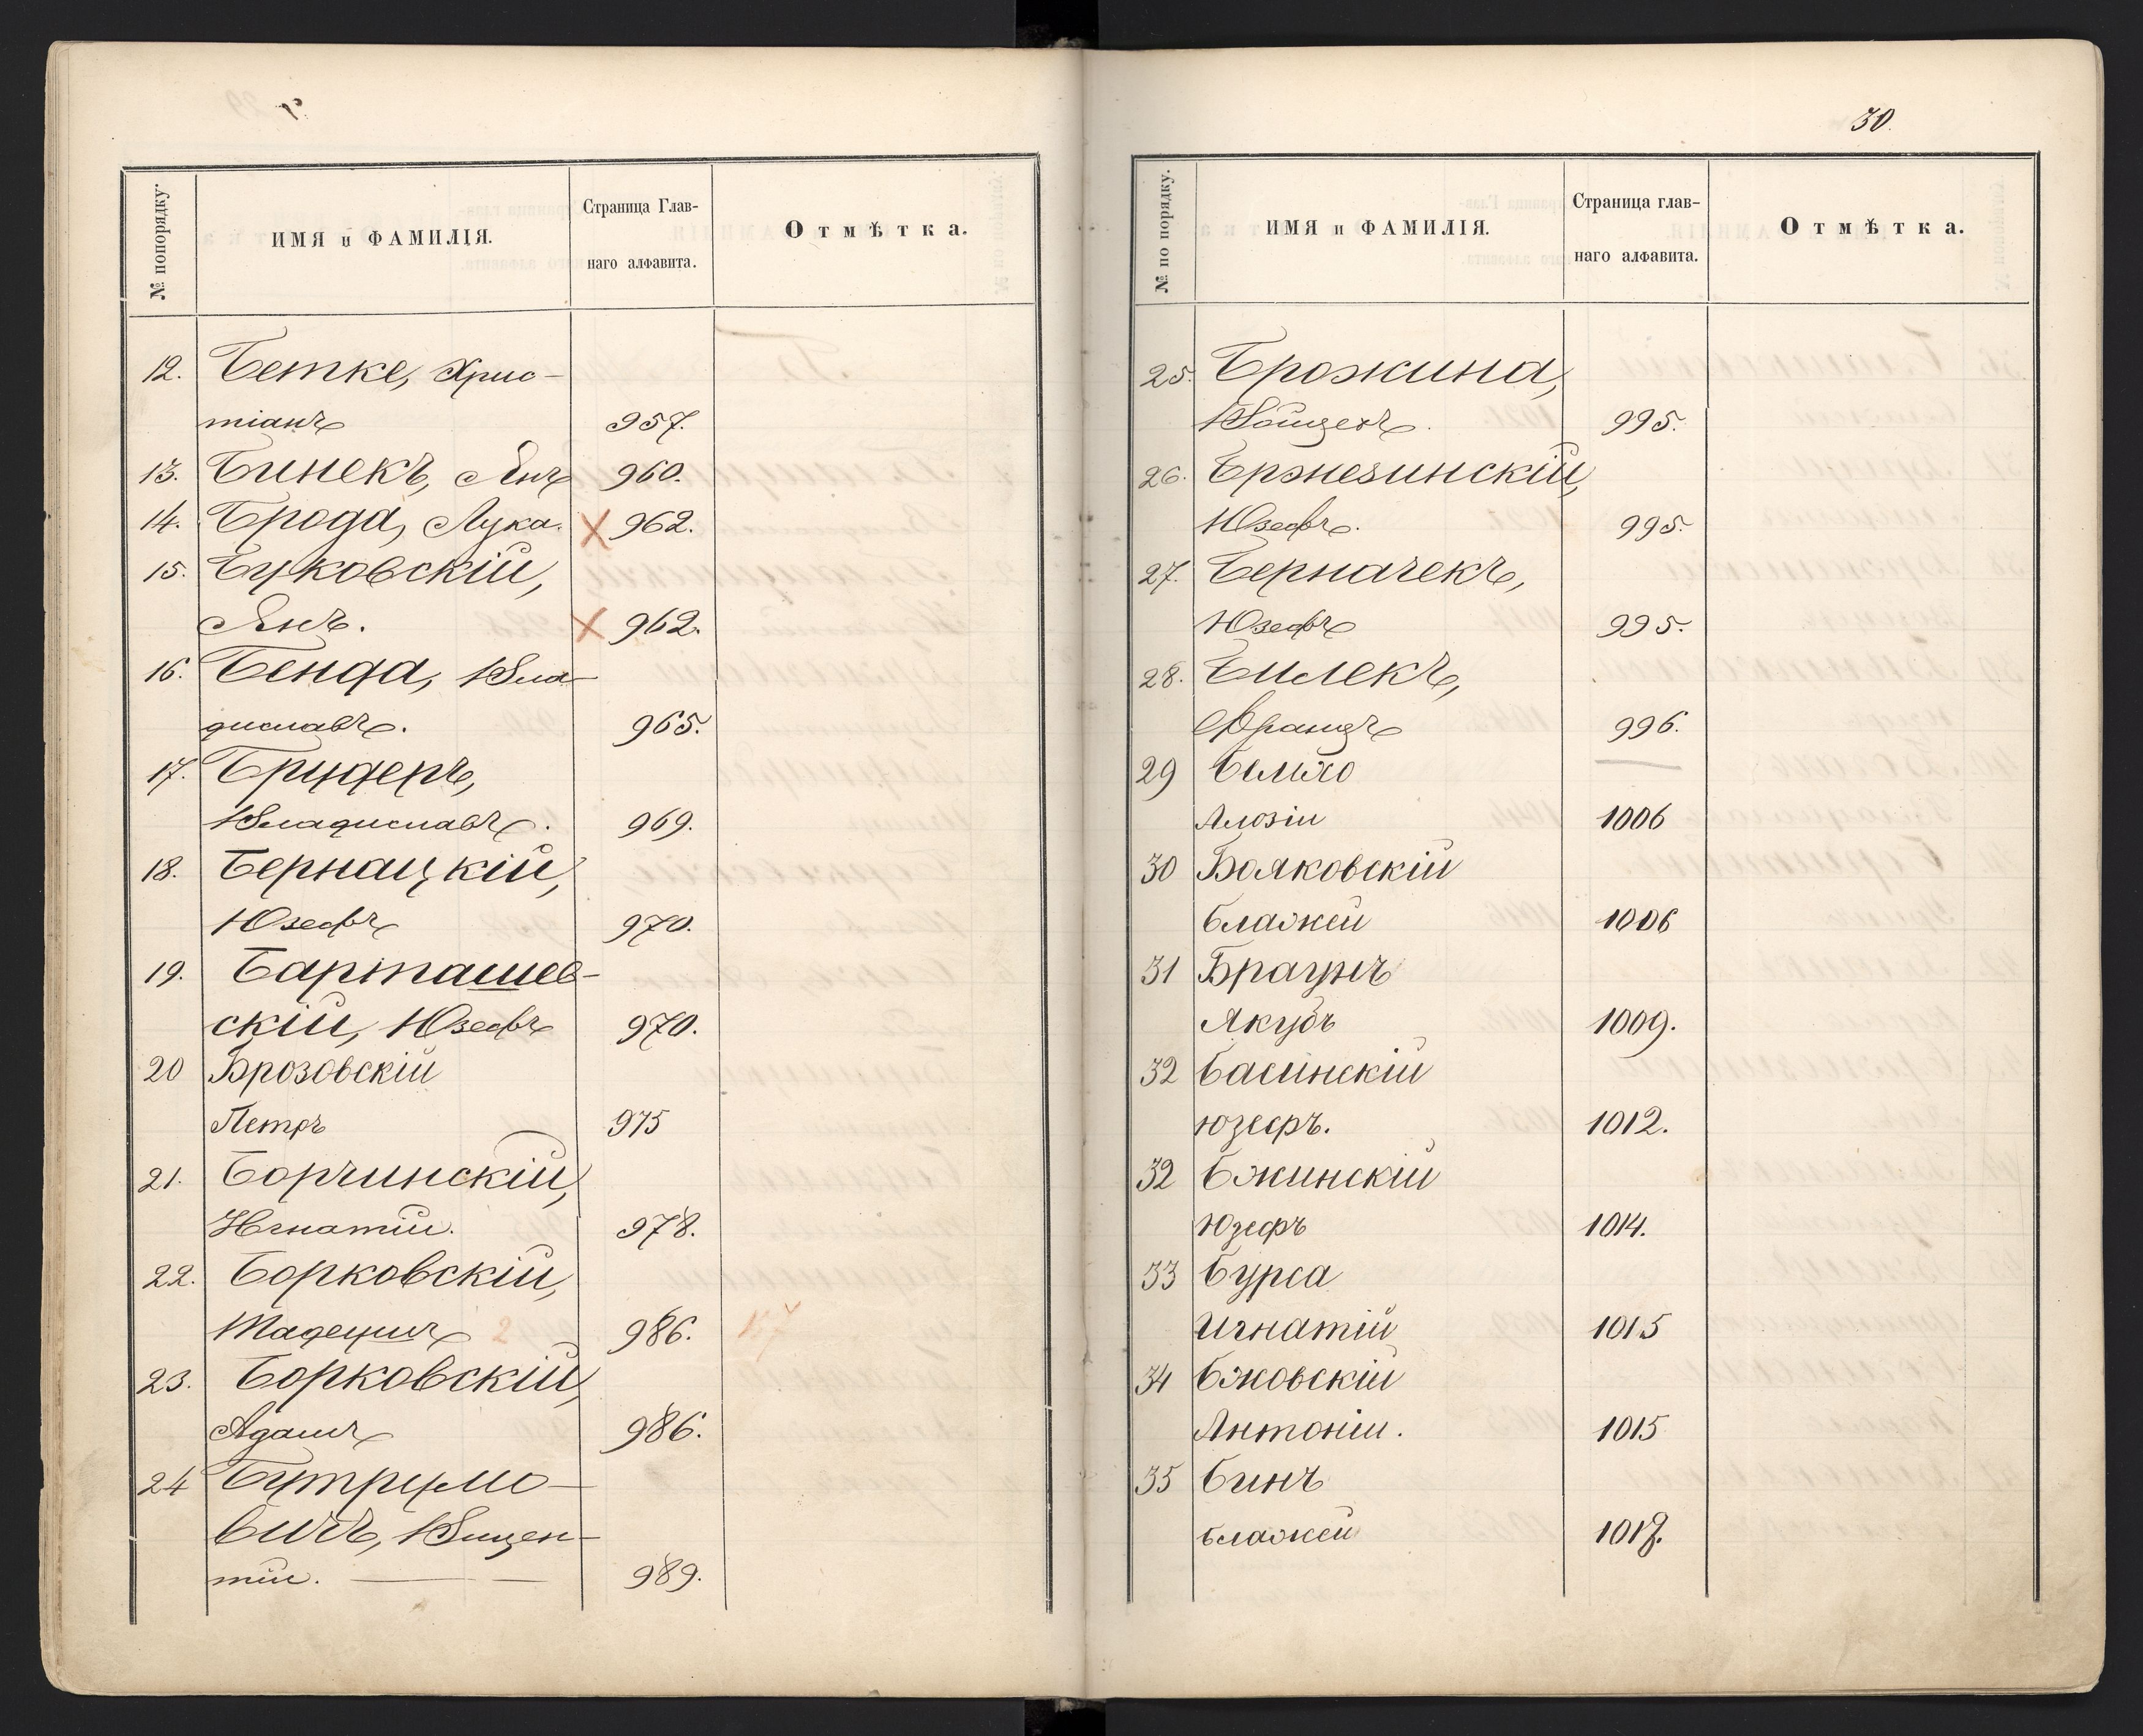 № попорядку.
ИМЯ и ФАМИЛІЯ.
Страница Глав-
наго алфавита.
Отмѣтка.
12. Бетке, Хрис-
тіанъ 957.
13. Бинекъ, Янъ 960.
14. Брода, Лука. X 962.
15. Буковскій,
Янъ. X 962.
16. Бенда, Вла-
диславъ. 965.
17. Брудеръ,
Владиславъ. 969.
18. Бернацкій,
Юзефъ 970.
19. Барташев-
скій, Юзефъ 970.
20 Брозовскій
Петръ 975
21. Борчинскій,
Игнатій. 978.
22. Борковскій,
Тадеушъ 2 986. 157
23. Борковскій,
Адамъ 986.
24 Бутрымо-
вичъ, Винцен-
тій. — — 989.
30
№ по порядку.
ИМЯ и ФАМИЛІЯ.
Страница глав-
наго алфавита.
Отмѣтка.
25. Брожина,
Войцехъ. 995.
26. Бржезинскій,
Юзефъ. 995.
27. Берначекъ,
Юзефъ 995.
28. Билекъ,
Францъ 996.
29
Алозій 1006
30 Бояковскій
Блажей 1006
31 Браунъ
Якубъ 1009.
32 Басинскій
Юзефъ. 1012.
32 Бжинскій
Юзефъ 1014.
33 Бурса
Игнатій 1015
34 Бжовскій
Антоній. 1015
35 Бинъ
Блажей